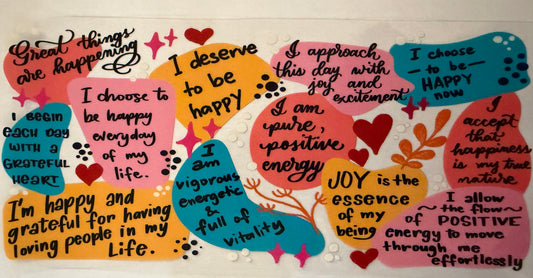 Great things
are happening
I deserve
to be
happy
I approach
this day with
joy and
excitement
I choose
to be
HAPPY
now
I BEGIN
EACH DAY
WITH A
GRATEFUL
HEART
I choose to
be happy
everyday
of my
life.
I am
pure,
positive
energy
I
accept
that
happiness
is my true
nature
I
am
vigorous
energetic
&
full of
vitality
JOY is the
essence
of my
being
I'm happy and
grateful for having
loving people in my
Life.
I allow
the flow
of POSITIVE
energy to move
through me
effortlessly